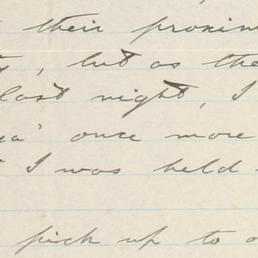 their proxim
, but as the
last night, I
ya' once more
I was held
pick up to